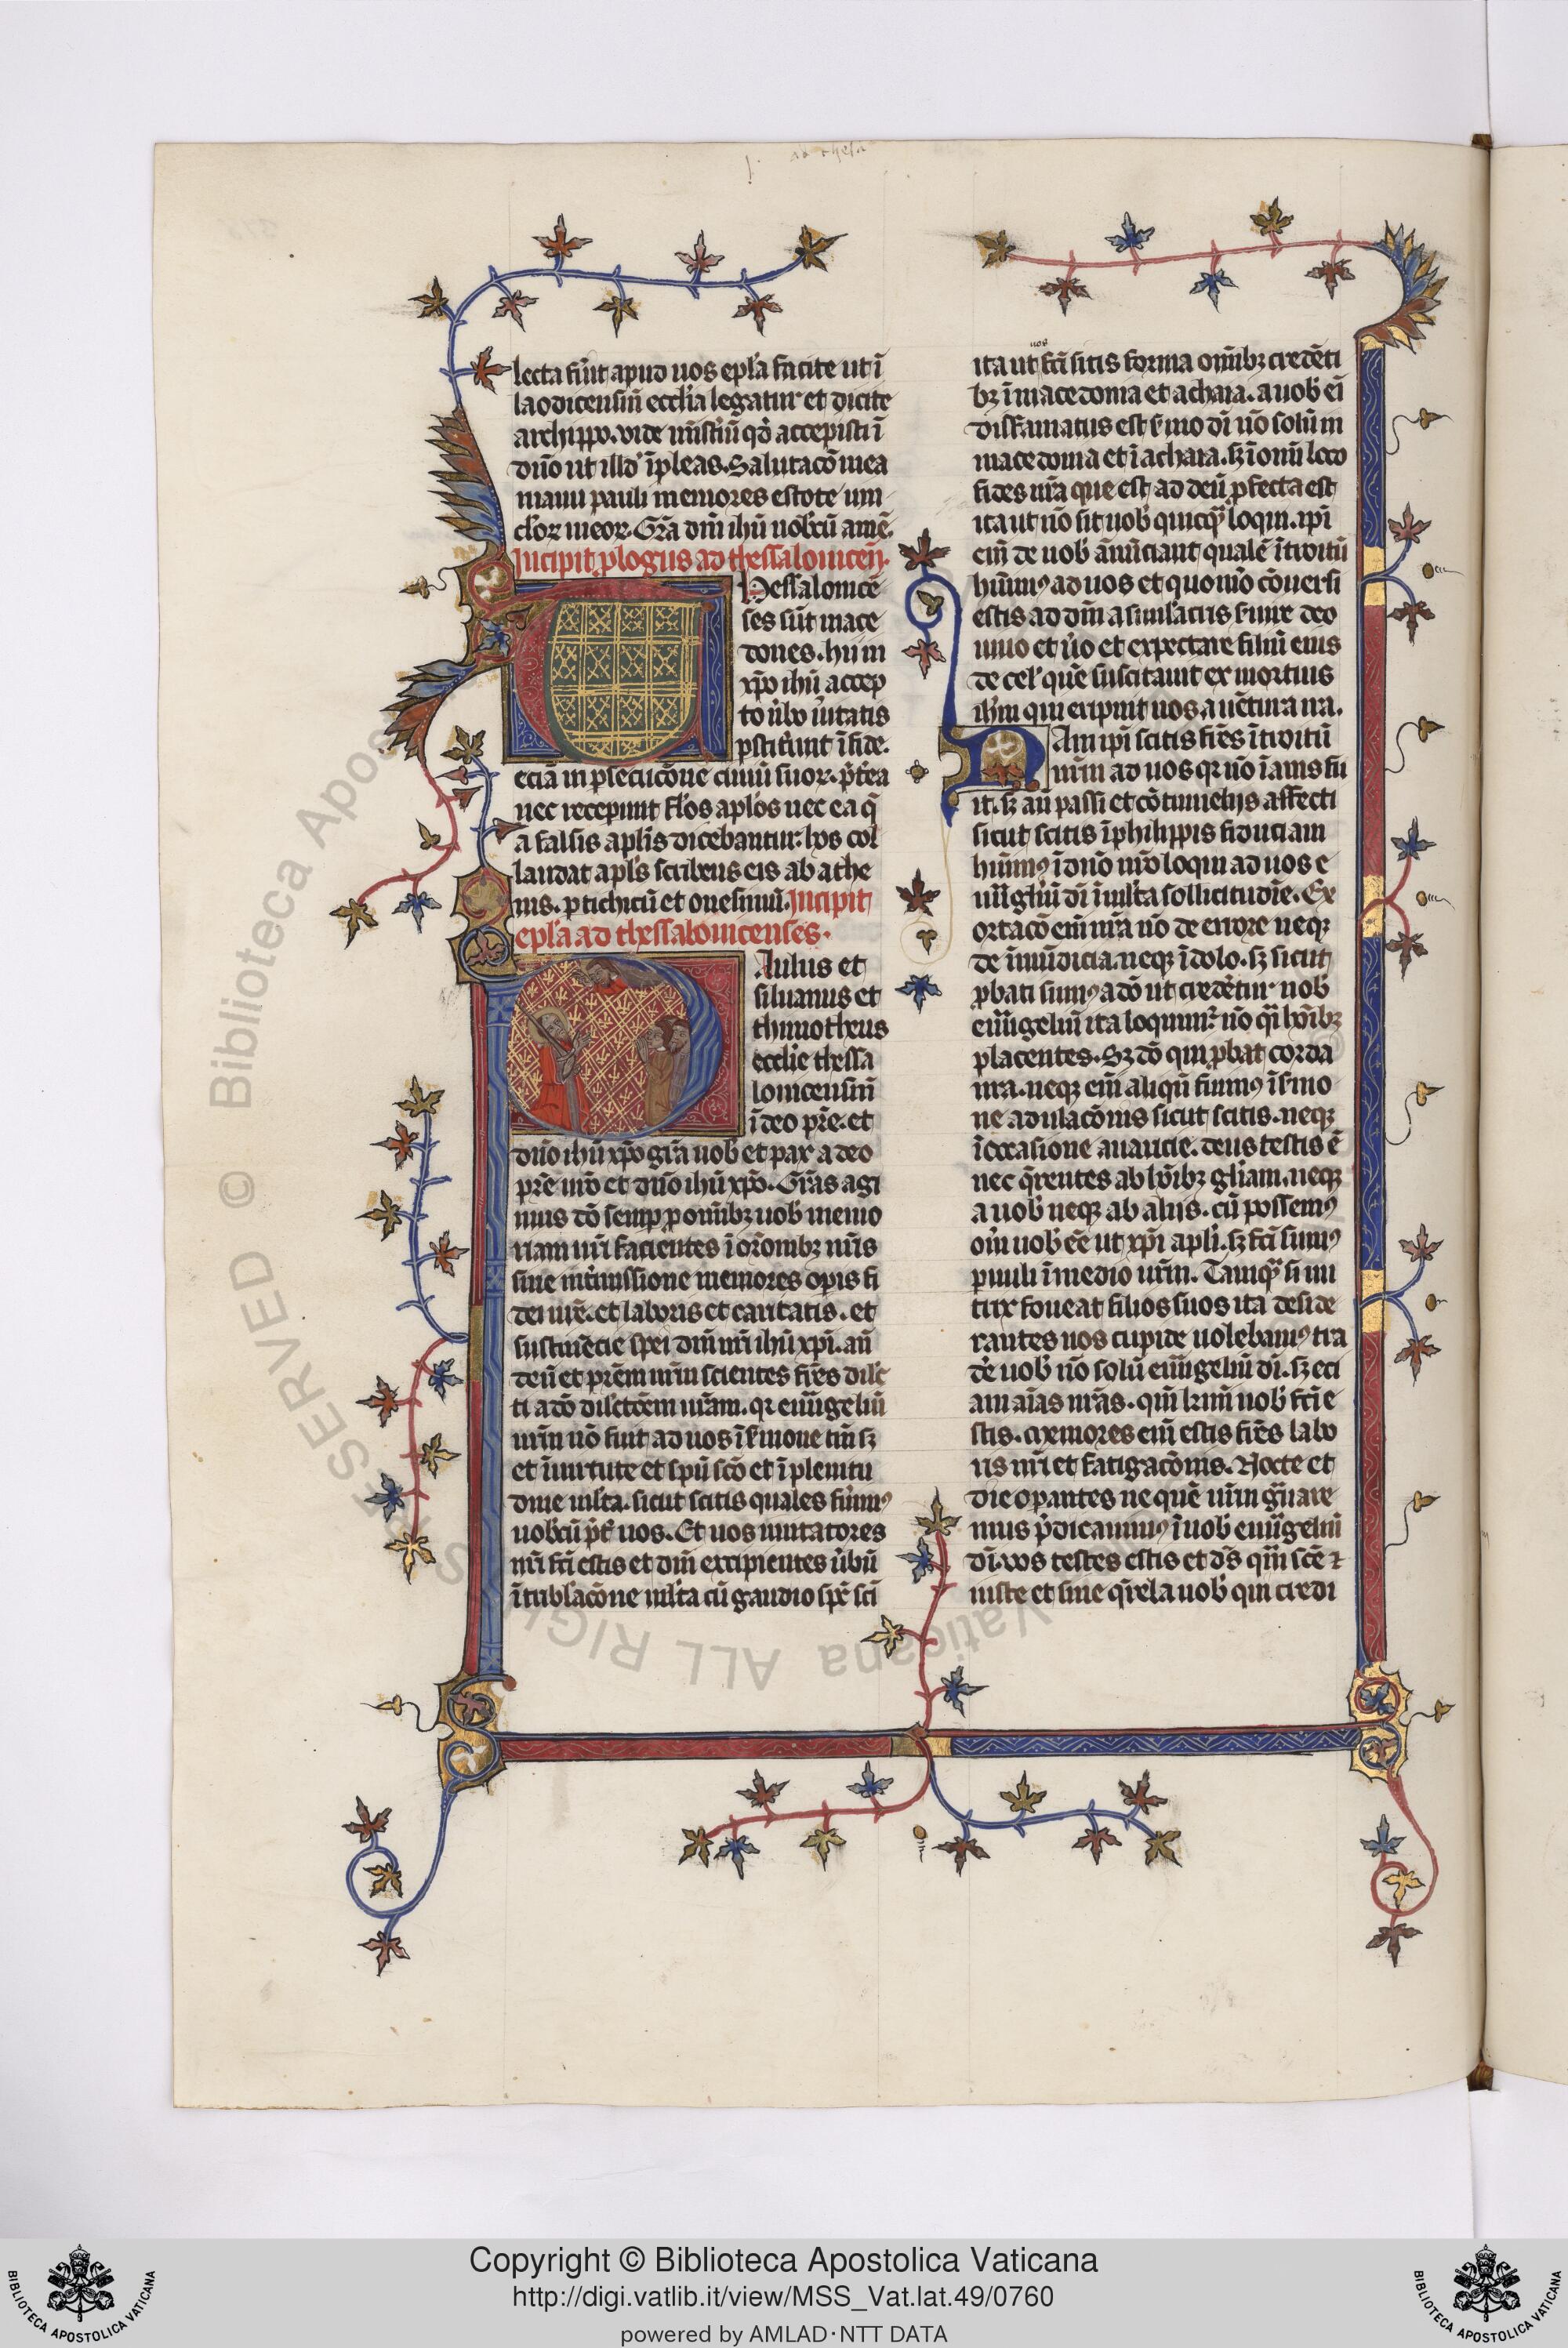 j. ad thesa
lecta fu̾it apud uos ep̃la facite ut ĩ
laodicensiũ eccl̃ia legatur et dicite
archippo. vide mĩst̾iũ qd̾ accepisti ĩ
dño ut illd̾ ĩpleas. Salutacõ mea
manu pauli memores estote uin
cl̾oꝝ meoꝝ. Gr̃a dñi ihũ uob̾cũ amẽ.
Incipit ꝓlogus ad thessalonicen̄.
Thessalonicẽ
ses sũt mace
dones. hii in
xp̃o ihũ accep
to ũbo ũitatis
ꝑstit̾unt ĩ fide.
eciã in ꝑsecucõne ciuiũ suoꝝ. p̃t̾ea
nec receperũt fl̾os apl̾os nec ea q̃
a falsis apl̾is dicebantur: hos col
laudat apl̾s scribens eis ab athe
nis. ꝑ tichicũ et onesimũ. Incipit
ep̃la ad thessalonicenses.
Paulus et
siluanus et
thimotheus
ecclie thessa
lonicensiũ
ĩ deo pr̃e. et
dño ihũ xp̃o gr̃a uob̾ et pax a deo
pr̃e nr̃o et dño ihũ xp̃o. Gr̃as agi
mus dõ semꝑ ꝓ om̃ibꝫ uob̾ memo
riam nr̃i facientes ĩ or̃onibꝫ nr̃is
sine int̾missione memores oꝑis fi
dei ur̃e. et laboris et caritatis. et
sustinẽcie spei dñi nr̃i ihũ xp̃i. añ
deũ et pr̃em nr̃m scientes fr̃es dil̾c
ti a dõ dil̾ctõem ur̃am. qꝛ euũgeliũ
nr̃m nõ fuit ad uos ĩ s̾mone tm̃ sꝫ
et ĩ uirtute et spũ scõ et ĩ plenitu
dine ml̾ta. sicut scitis quales fuimꝰ
uob̾cũ ꝓpt̾ uos. Et uos imitatores
nr̃i fc̃i estis et dñi excipientes ũbũ
ĩ tribl̾acõne ml̾ta cũ gaudio sp̃c sc̃i
uos
ita ut fc̃i sitis forma om̃ibꝫ credẽti
bꝫ ĩ macedonia et achaia. a uob̾ eĩ
diffamatus est s̾mo dĩ nõ solũ in
macedonia et ĩ achaia. sꝫ ĩ om̃i loco
fides ur̃a que est ad deũ ꝓfecta est
ita ut nõ sit uob̾ quicq̃ loqui. ip̃i
eñi de uob̾ ãnũciant qualẽ ĩtroitũ
hũimꝰ ad uos et quom̃o cõuersi
estis ad dm̃ a simlacris s̾uire deo
uiuo et ũo et expectare filiũ eius
de cel̾ quẽ suscitauit ex mortuis
ih̃m qui eripuit nos a uẽtura ira.
Nam ip̃i scitis fr̃es ĩtroitũ
nr̃m ad uos qꝛ nõ ĩanis fu
it. sꝫ añ passi et cõtumeliis affecti
sicut scitis ĩ philippis fiduciam
hũimꝰ ĩ dño nr̃o loqui ad uos e
uũgliũ dĩ ĩ ml̾ta sollicitudĩe. Ex
ortacõ eñi nr̃a nõ de errore neqꝫ
de ĩmũdicia. neqꝫ ĩ dolo. sꝫ sicut
ꝓbati sumꝰ a dõ ut credẽtur nob̾
euũgeliũ ita loquimꝛ nõ q̃i hoĩibꝫ
placentes. Sꝫ dõ qui ꝓbat corda
nr̃a. neqꝫ eñi aliqñ fuimꝰ ĩ s̾mo
ne adulacõnis sicut scitis. neqꝫ
ĩ occasione auaricie. deus testis ẽ
nec q̃rentes ab hoĩbꝫ gl̃iam. neqꝫ
a uob̾ neqꝫ ab aliis. cũ possemꝰ
oñi uob̾ eẽ ut xp̃i apl̾i. sꝫ fc̃i sumꝰ
paruuli ĩ medio ur̃m. Tamq̃ si nu
trix foueat filios suos ita deside
rantes uos cupide uolebamꝰ tra
dẽ uob̾ nõ solũ euũgeliũ dĩ. sꝫ eci
am aĩas nr̃as. qm̃ kr̃mi nob̾ fc̃i e
stis. memores eñi estis fr̃es labo
ris nr̃i et fatigacõnis. Nocte et
die oꝑantes ne quẽ ur̃m g̃uare
mus p̃dicauimꝰ ĩ uob̾ euũgeliũ
dĩ. vos testes estis et ds̃ qm̃ scẽ ⁊
iuste et sine q̃rela uob̾ qui credi
© Biblioteca Apostolica Vaticana ALL RIGHTS RESERVED
Copyright © Biblioteca Apostolica Vaticana
http://digi.vatlib.it/view/MSS_Vat.lat.49/0760
powered by AMLAD·NTT DATA
BIBLIOTECA APOSTOLICA VATICANA
BIBLIOTECA APOSTOLICA VATICANA